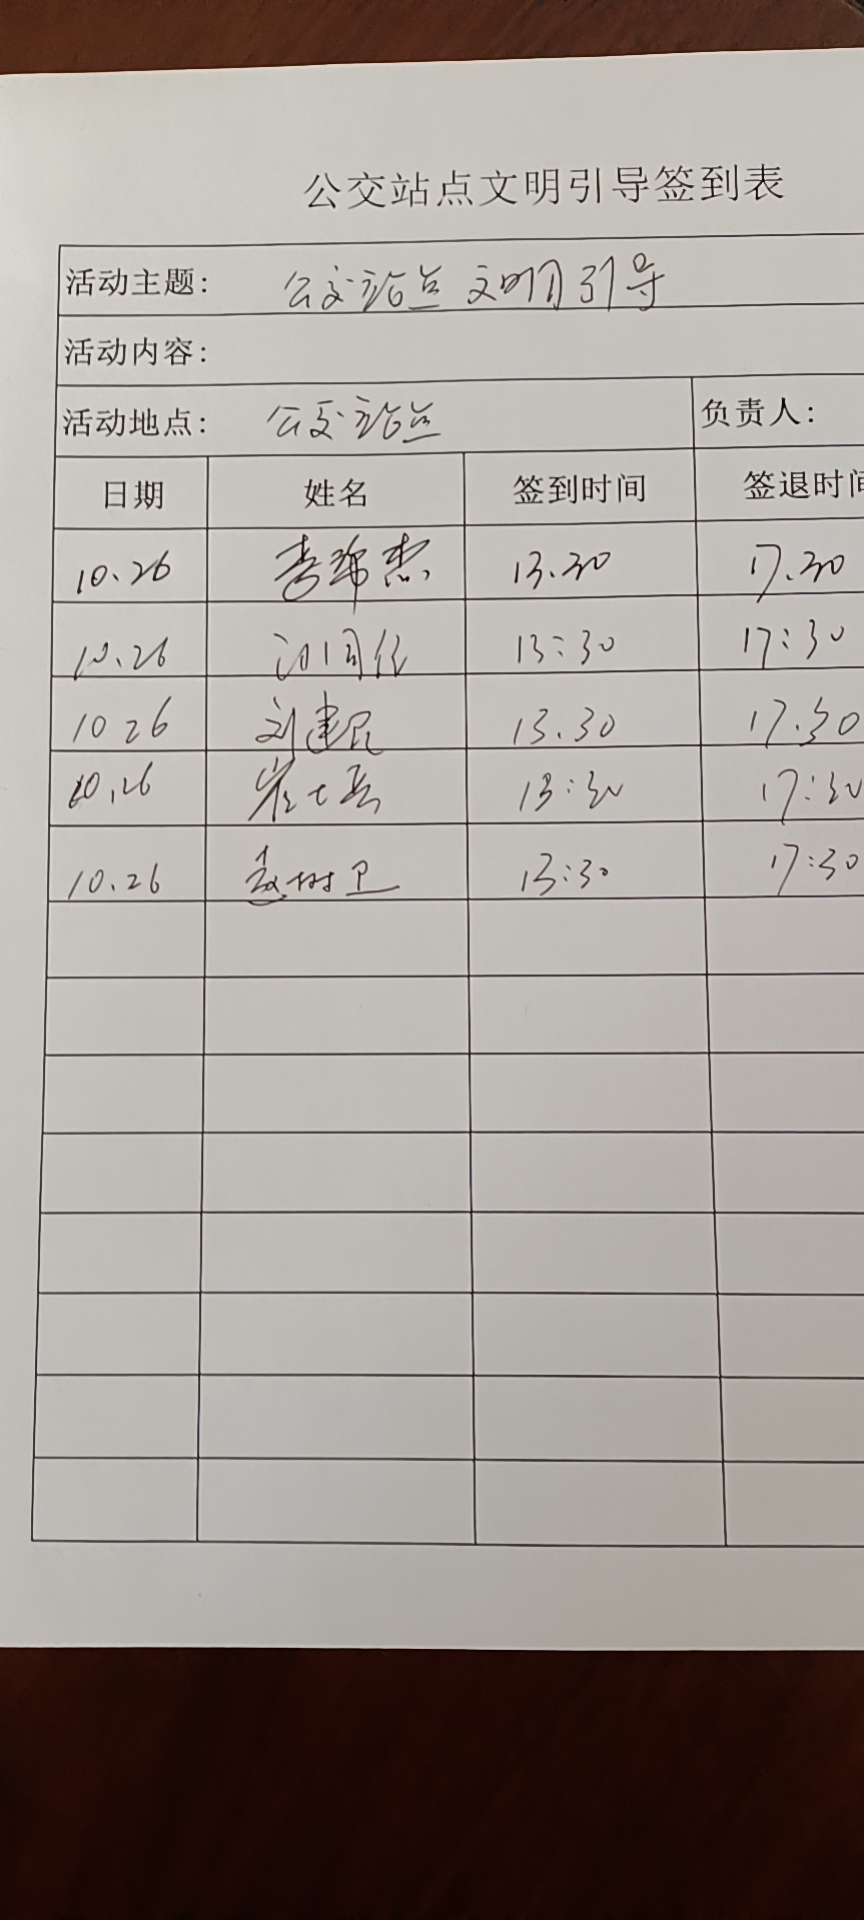 公交站点文明引导签到表
活动主题: 公交站点文明引导
活动内容:
活动地点: 公交站点 负责人:
日期 姓名 签到时间 签退时间
10.26 13.30 17.30
10.26 13:30 17:30
10 26 刘建民 13.30 17.30
10.26 13:30 17:30
10.26 赵树卫 13:30 17:30